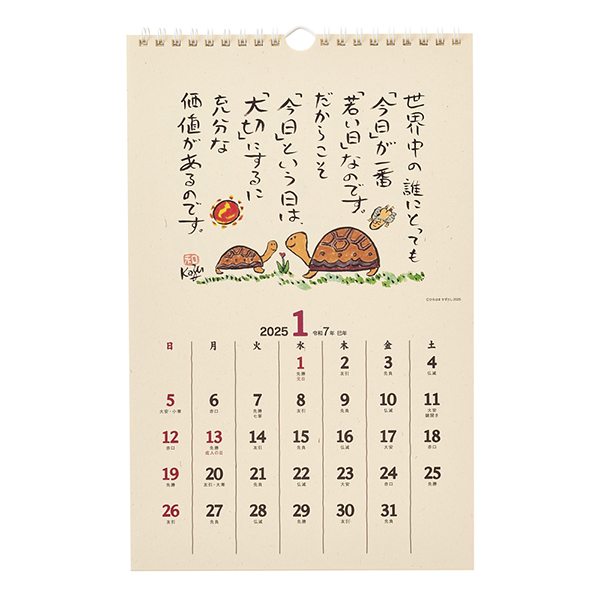 世界中の誰にとっても
「今日」が一番
「若い日」なのです。
だからこそ
「今日」という日は、
「大切」にするに
充分な
価値があるのです。
和
Kazu
2025 1 令和7年 巳年
日 月 火 水 木 金 土
1 2 3 4
先勝 友引 先負 仏滅
元日
5 6 7 8 9 10 11
大安・小寒 赤口 先勝 友引 先負 仏滅 大安
七草 鏡開き
12 13 14 15 16 17 18
赤口 先勝 友引 先負 仏滅 大安 赤口
成人の日
19 20 21 22 23 24 25
先勝 友引・大寒 先負 仏滅 大安 赤口 先勝
26 27 28 29 30 31
友引 先負 仏滅 先勝 友引 先負